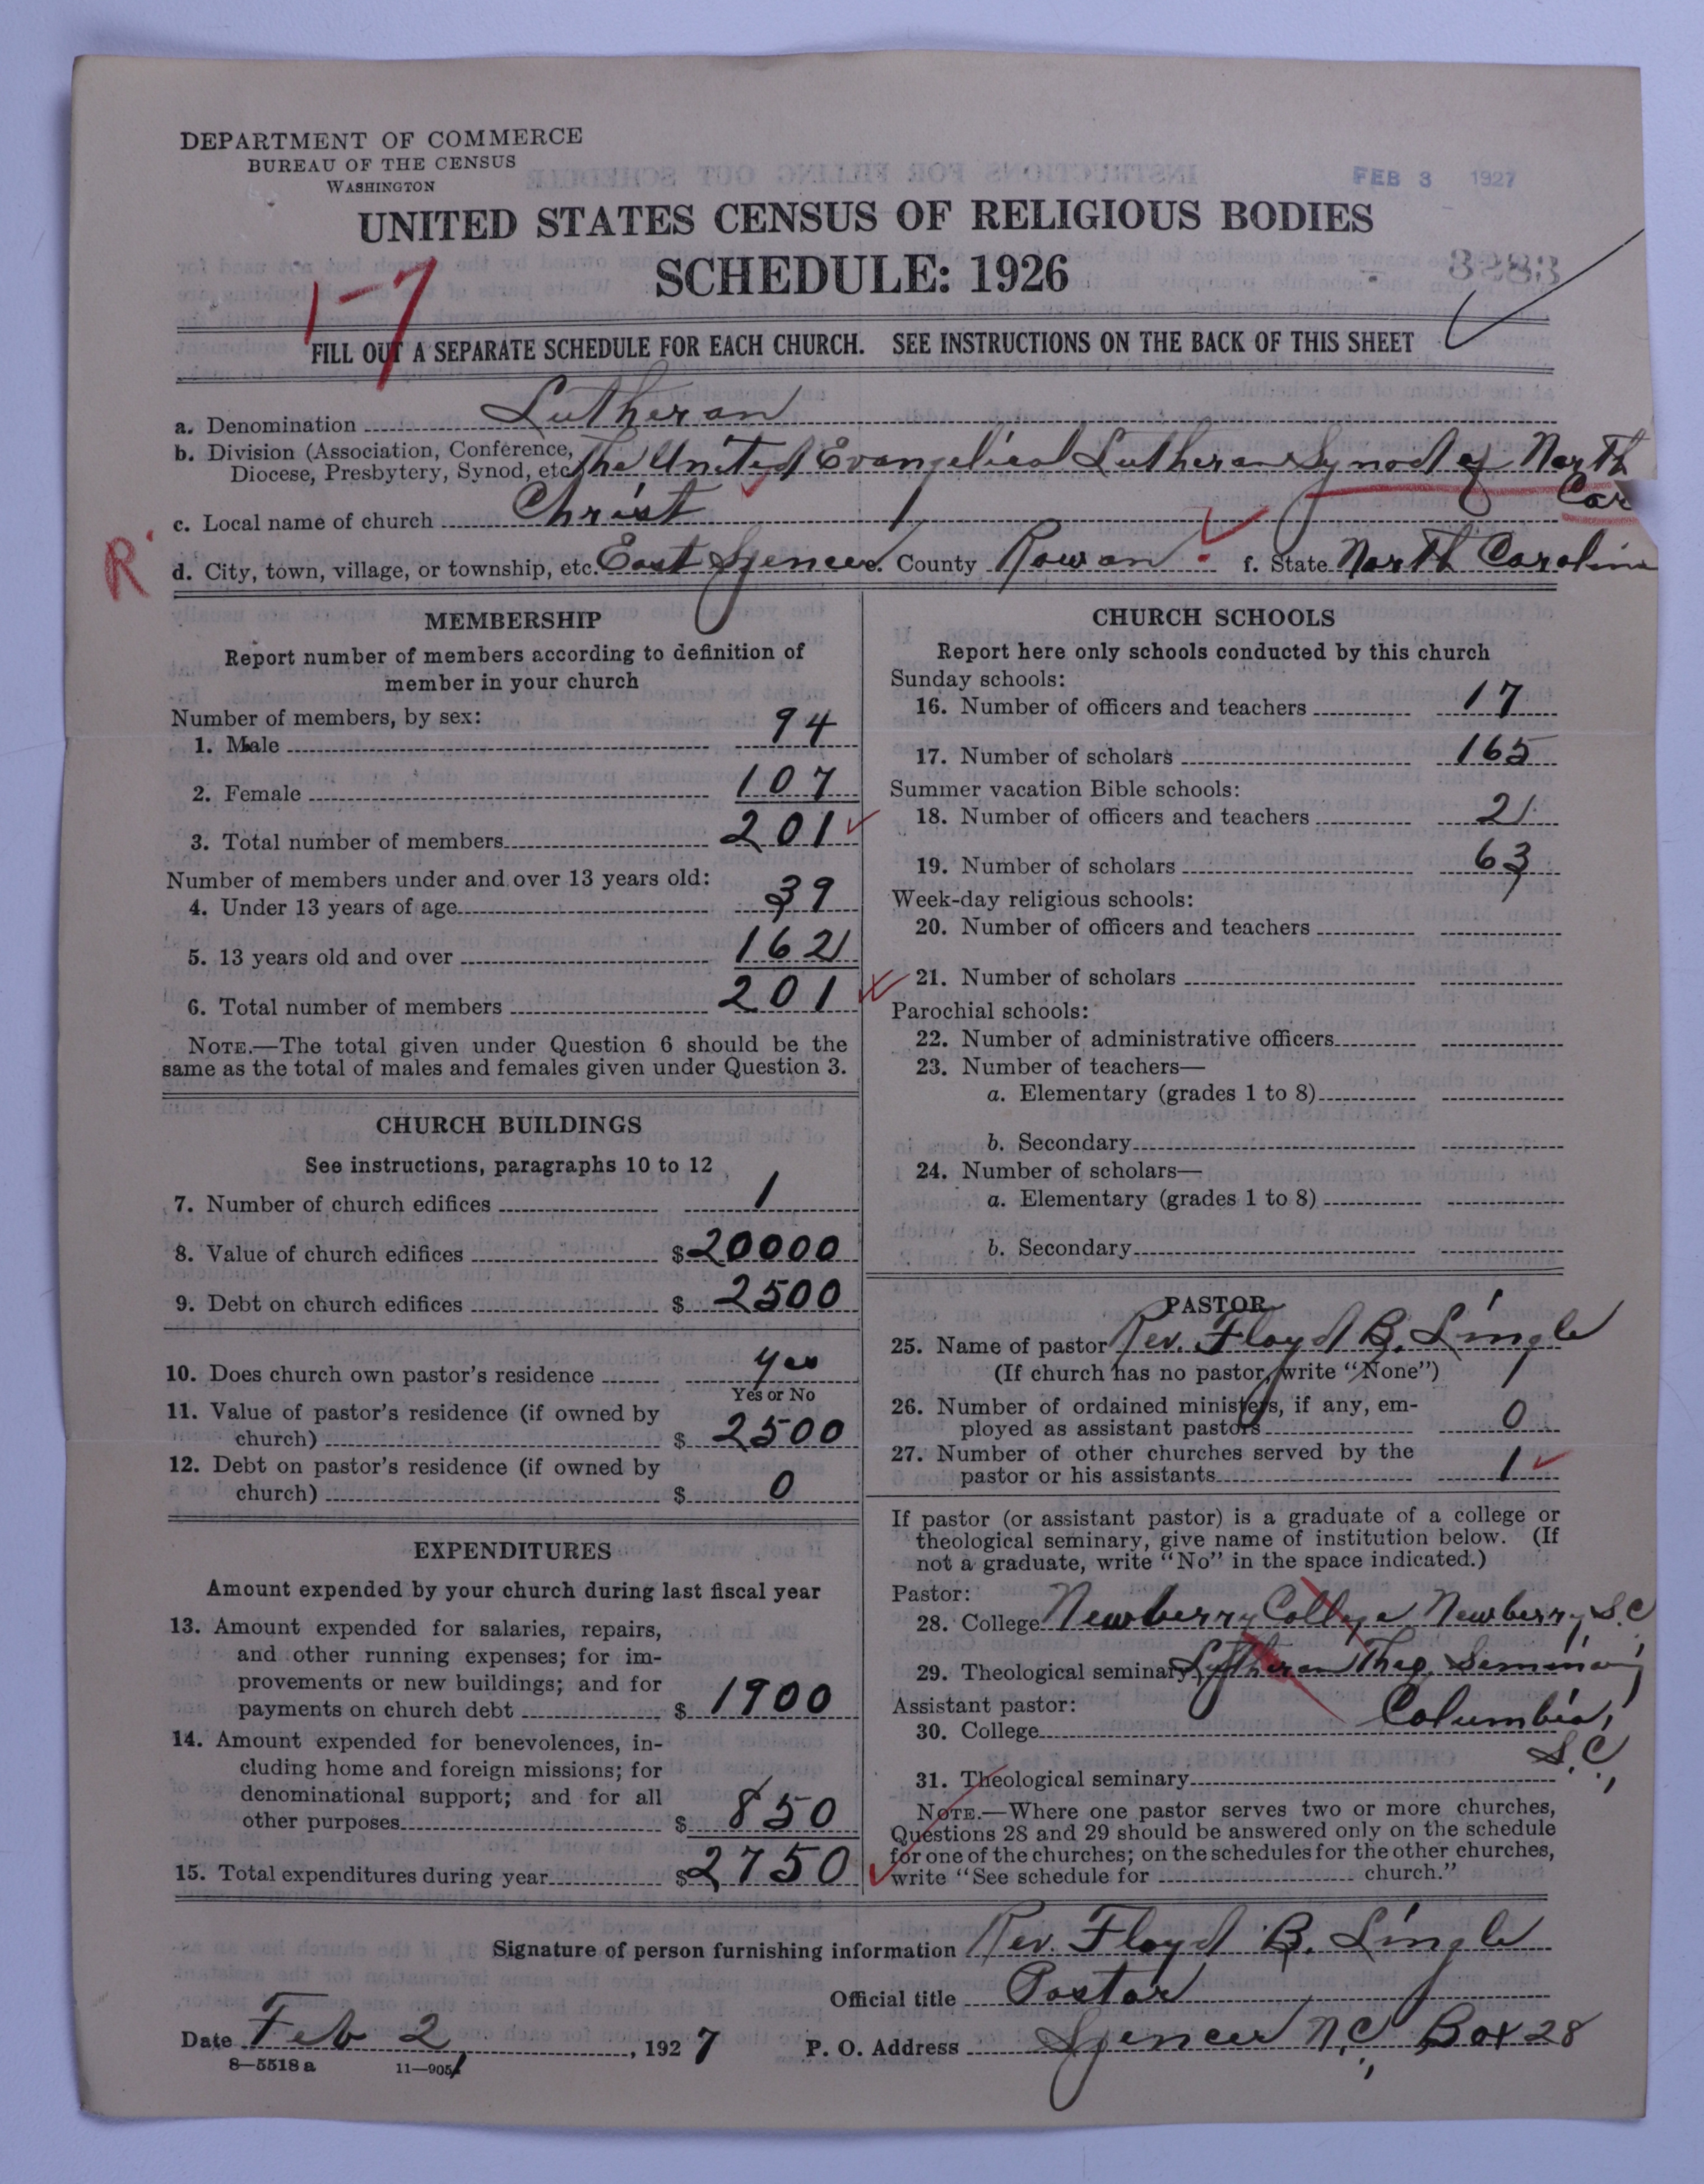 DEPARTMENT OF COMMERCE
BUREAU OF THE CENSUS
WASHINGTON
FEB 3 1927
UNITED STATES CENSUS OF RELIGIOUS BODIES
SCHEDULE: 1926
3283
1-7
FILL OUT A SEPARATE SCHEDULE FOR EACH CHURCH. SEE INSTRUCTIONS ON THE BACK OF THIS SHEET
a. Denomination Lutheran
b. Division (Association, Conference, Diocese, Presbytery, Synod, etc. The United Evangelical Lutheran Synod of North Car
c. Local name of church Christ
R
d. City, town, village, or township, etc. East Spencer e. County Rowan f. State North Carolina
MEMBERSHIP
Report number of members according to definition of
member in your church
Number of members, by sex:
1. Male 94
2. Female 107
3. Total number of members 201
Number of members under and over 13 years old:
4. Under 13 years of age 39
5. 13 years old and over 162
6. Total number of members 201
NOTE.—The total given under Question 6 should be the
same as the total of males and females given under Question 3.
CHURCH BUILDINGS
See instructions, paragraphs 10 to 12
7. Number of church edifices 1
8. Value of church edifices $20000
9. Debt on church edifices $ 2500
10. Does church own pastor's residence yes
Yes or No
11. Value of pastor's residence (if owned by
church) $ 2500
12. Debt on pastor's residence (if owned by
church) $ 0
EXPENDITURES
Amount expended by your church during last fiscal year
13. Amount expended for salaries, repairs,
and other running expenses; for im-
provements or new buildings; and for
payments on church debt $ 1900
14. Amount expended for benevolences, in-
cluding home and foreign missions; for
denominational support; and for all
other purposes $ 850
15. Total expenditures during year $2750
CHURCH SCHOOLS
Report here only schools conducted by this church
Sunday schools:
16. Number of officers and teachers 17
17. Number of scholars 165
Summer vacation Bible schools:
18. Number of officers and teachers 2
19. Number of scholars 63
Week-day religious schools:
20. Number of officers and teachers
21. Number of scholars
Parochial schools:
22. Number of administrative officers
23. Number of teachers—
a. Elementary (grades 1 to 8)
b. Secondary
24. Number of scholars—
a. Elementary (grades 1 to 8)
b. Secondary
PASTOR
25. Name of pastor Rev. Floyd B. Lingle
(If church has no pastor, write "None")
26. Number of ordained ministers, if any, em-
ployed as assistant pastors 0
27. Number of other churches served by the
pastor or his assistants 1
If pastor (or assistant pastor) is a graduate of a college or
theological seminary, give name of institution below. (If
not a graduate, write "No" in the space indicated.)
Pastor:
28. College Newberry College Newberry, S.C.
29. Theological seminary Lutheran Theo. Seminary,
Assistant pastor:
Columbia,
30. College
S.C.,
31. Theological seminary
NOTE.—Where one pastor serves two or more churches,
Questions 28 and 29 should be answered only on the schedule
for one of the churches; on the schedules for the other churches,
write "See schedule for church."
Signature of person furnishing information Rev. Floyd B. Lingle
Official title Pastor
Date Feb 2, 1927 P. O. Address Spencer N.C., Box 28
8—5518 a 11—9051